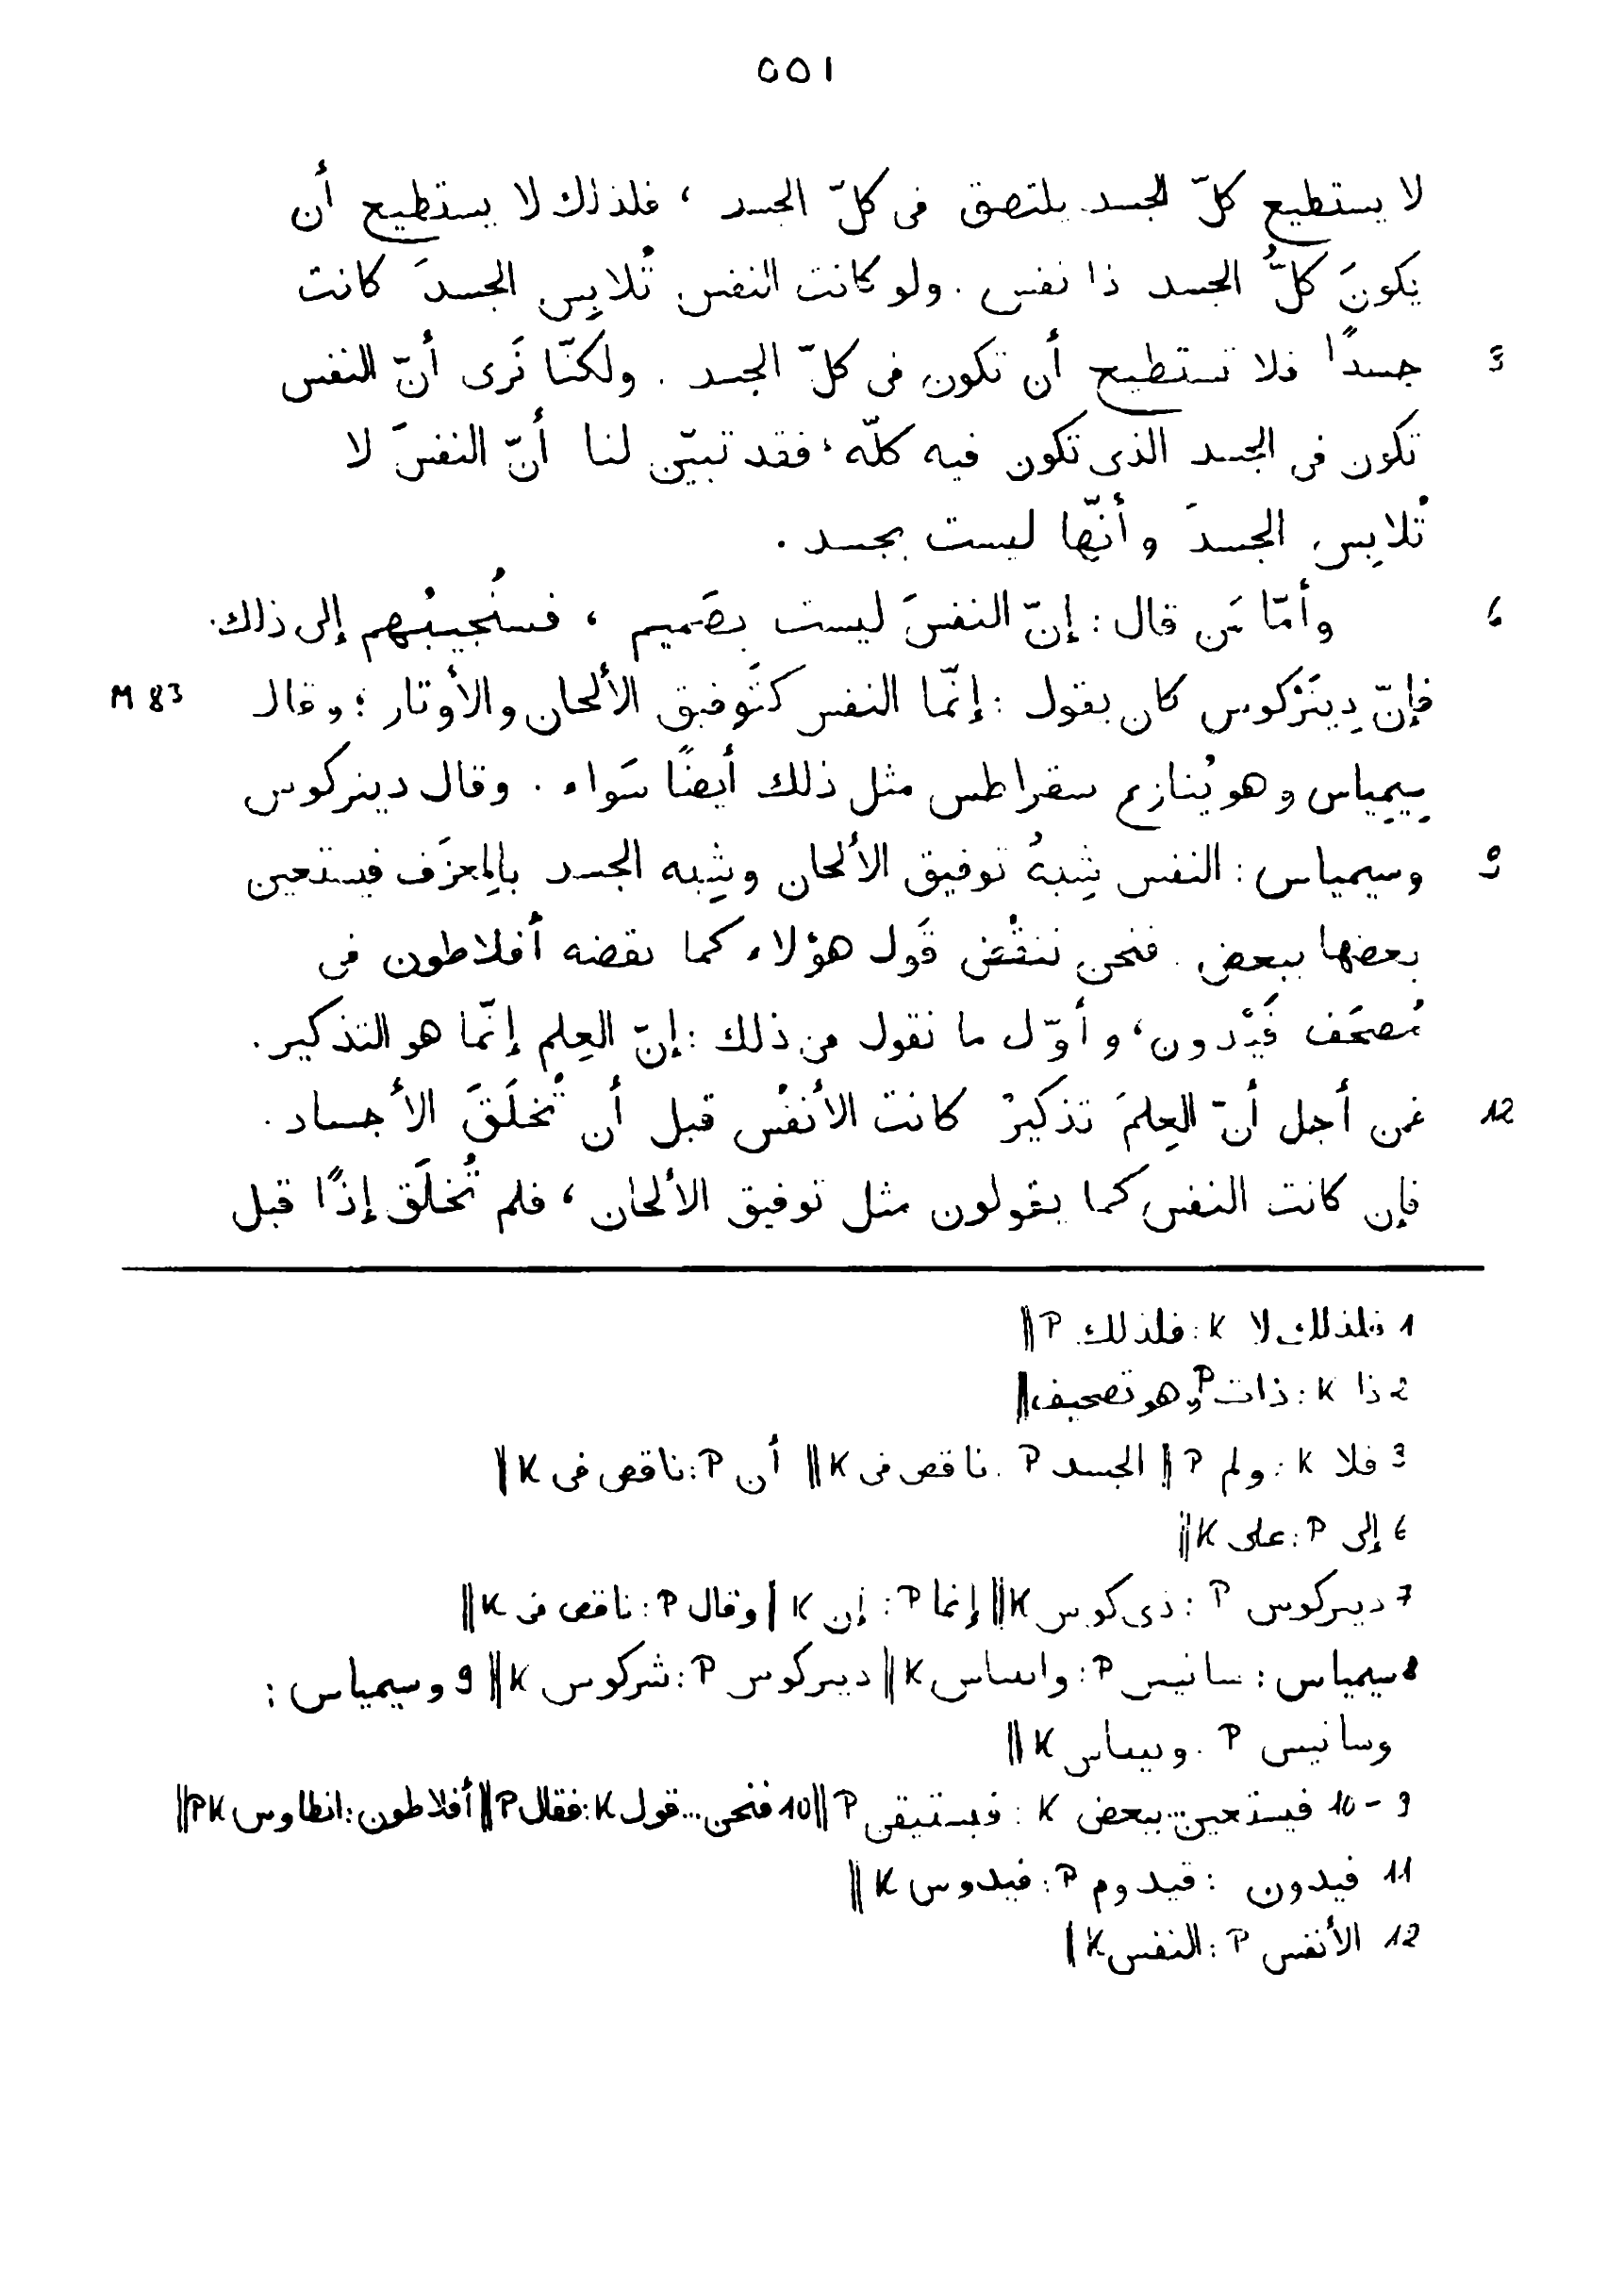 ٥٥١
لا يستطيع كلّ الجسد يلتصق فى كلّ الجسد ، فلذلك لا يستطيع أن
يكونَ كلُّ الجسد ذا نفس . ولو كانت النفس تُلابِس الجسدَ كانت
3 جسدًا فلا تستطيع أن تكون فى كلّ الجسد . ولكنّا نَرى أنّ النفس
تكون فى الجسد الذى تكون فيه كلّه ، فقد تبيّن لنا أنّ النفسَ لا
تُلابِس الجسدَ وأنّها ليست بجسد .
6 وأمّا مَن قال : إنّ النفسَ ليست بصَميم ، فسنُجيبُهم إلى ذلك .
فإنّ دِينَرْكوس كان يقول : إنّما النفس كتَوفيق الألحان والأوتار ؛ وقال M 83
سِيمِياس وهو يُنازع سقراطس مثل ذلك أيضًا سَواء . وقال دينركوس
9 وسيمياس : النفس شِبهُ توفيق الألحان وشِبه الجسد بالمِعزَف فيستعين
بعضها ببعض . فنحن ننقُض قَول هؤلاء كما نقضه أفلاطون فى
مُصحَف فَيْدون ، وأوّل ما نقول من ذلك : إنّ العِلم إنّما هو التذكير .
12 فمن أجل أنّ العِلمَ تذكيرٌ كانت الأنفُس قبل أن تُخلَقَ الأجساد .
فإن كانت النفس كما يقولون مثل توفيق الألحان ، فلم تُخلَق إذًا قبل
1 فلذلك لا K : فلذلك P ||
2 ذا K : ذات P وهو تصحيف ||
3 فلا K : ولم P || الجسد P : ناقص فى K || أن P : ناقص فى K ||
6 إلى P : على K ||
7 ديىركوس P : ذى كوس K || إنما P : إن K | وقال P : ناقص فى K ||
8 سيمياس : سانيس P : K || ديىركوس P : شركوس K || 9 وسيمياس :
وسانيس P : K ||
9 – 10 فيستعين ... ببعض K : P || 10 فنحن ... قول K : فقال P || أفلاطون : انطاوس PK ||
11 فيدون : قيدوم P : فيدوس K ||
12 الأنفس P : النفس K |